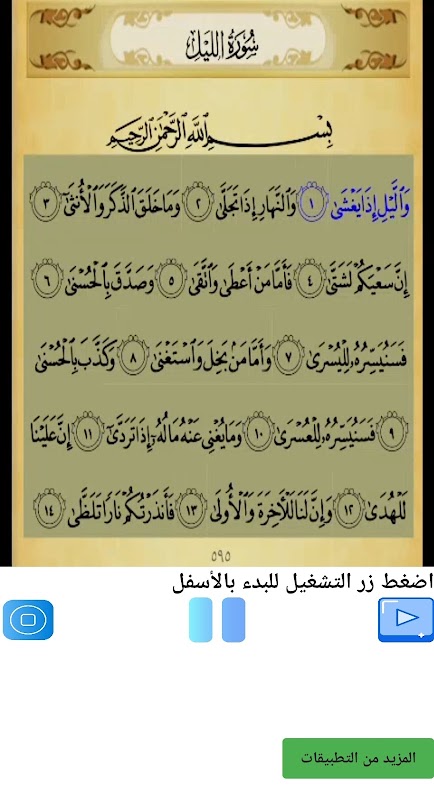 سُورَةُ اللَّيْلِ
بِسْمِ اللَّهِ الرَّحْمَٰنِ الرَّحِيمِ
وَاللَّيْلِ إِذَا يَغْشَىٰ ١ وَالنَّهَارِ إِذَا تَجَلَّىٰ ٢ وَمَا خَلَقَ الذَّكَرَ وَالْأُنثَىٰ ٣
إِنَّ سَعْيَكُمْ لَشَتَّىٰ ٤ فَأَمَّا مَنْ أَعْطَىٰ وَاتَّقَىٰ ٥ وَصَدَّقَ بِالْحُسْنَىٰ ٦
فَسَنُيَسِّرُهُ لِلْيُسْرَىٰ ٧ وَأَمَّا مَنْ بَخِلَ وَاسْتَغْنَىٰ ٨ وَكَذَّبَ بِالْحُسْنَىٰ
٩ فَسَنُيَسِّرُهُ لِلْعُسْرَىٰ ١٠ وَمَا يُغْنِي عَنْهُ مَالُهُ إِذَا تَرَدَّىٰ ١١ إِنَّ عَلَيْنَا
لَلْهُدَىٰ ١٢ وَإِنَّ لَنَا لَلْآخِرَةَ وَالْأُولَىٰ ١٣ فَأَنذَرْتُكُمْ نَارًا تَلَظَّىٰ ١٤
٥٩٥
اضغط زر التشغيل للبدء بالأسفل
المزيد من التطبيقات